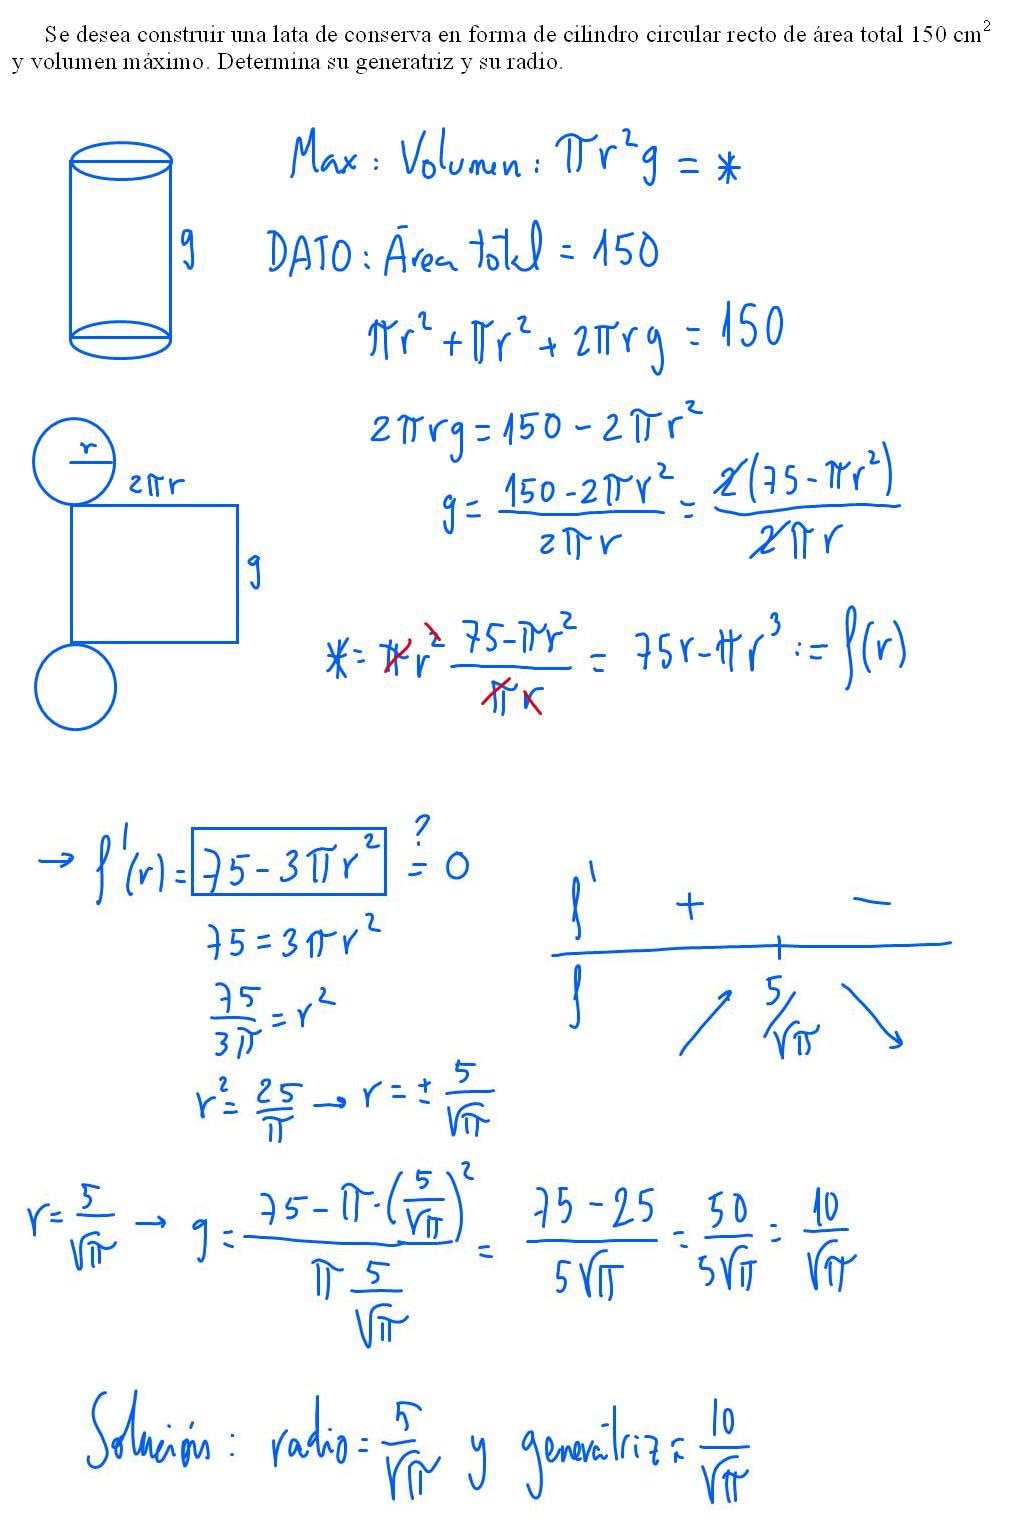 Se desea construir una lata de conserva en forma de cilindro circular recto de área total 150 cm²
y volumen máximo. Determina su generatriz y su radio.
Max: Volumen: πr²g = *
g
DATO: Área total = 150
πr² + πr² + 2πrg = 150
2πrg = 150 - 2πr²
r
2πr
g = (150 - 2πr²)/(2πr) = 2(75 - πr²)/(2πr)
g
* = πr² (75 - πr²)/(πr) = 75r - πr³ := f(r)
→ f'(r) = 75 - 3πr² ?= 0
f' + -
75 = 3πr²
f 5/√π
75/(3π) = r²
r² = 25/π → r = ± 5/√π
r = 5/√π → g = (75 - π·(5/√π)²)/(π 5/√π) = (75 - 25)/(5√π) = 50/(5√π) = 10/√π
Solución: radio = 5/√π y generatriz = 10/√π